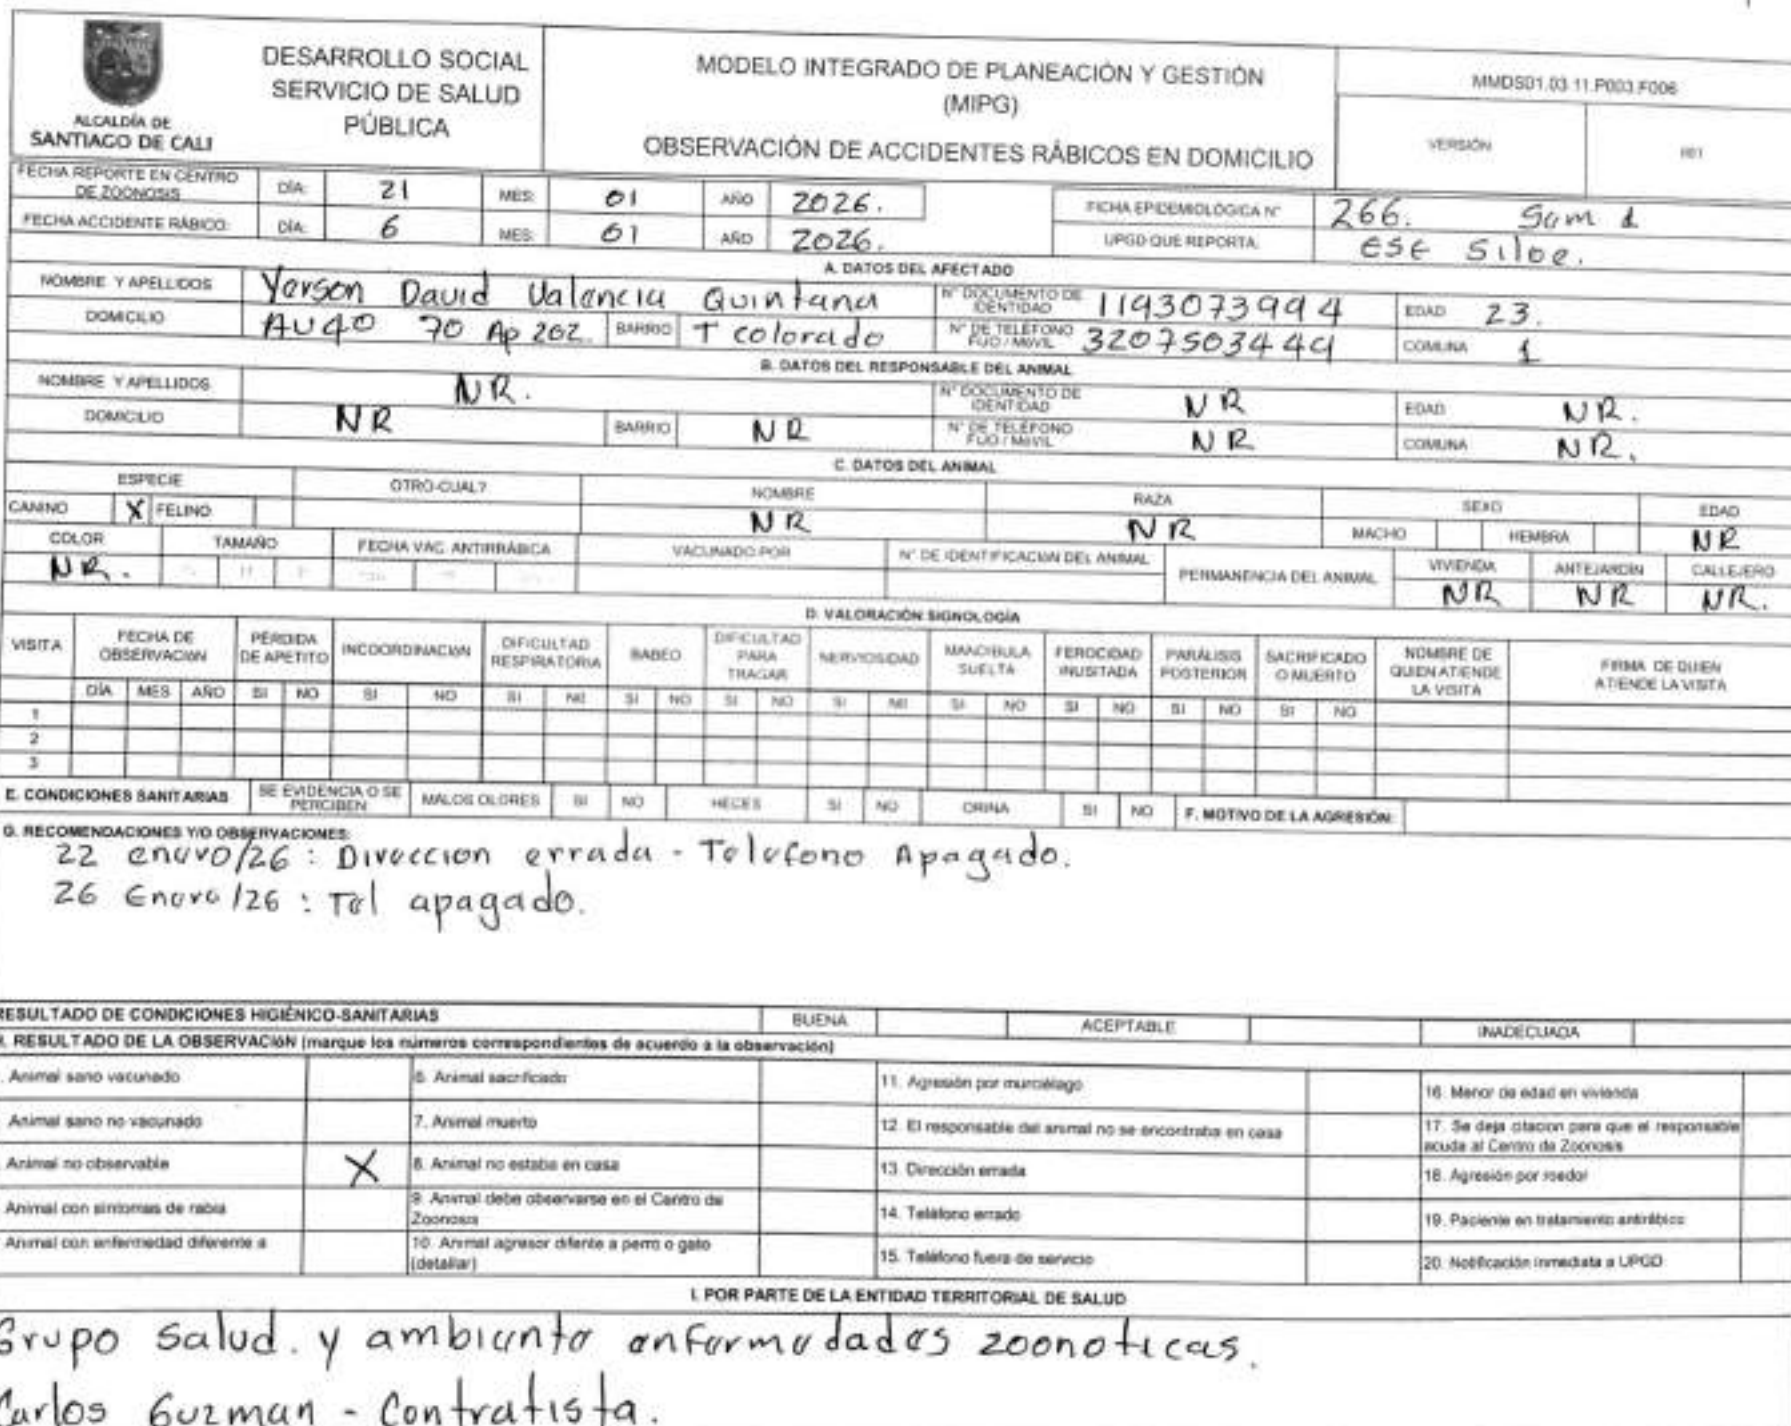 ALCALDÍA DE
SANTIAGO DE CALI
DESARROLLO SOCIAL
SERVICIO DE SALUD
PÚBLICA
MODELO INTEGRADO DE PLANEACIÓN Y GESTIÓN
(MIPG)
OBSERVACIÓN DE ACCIDENTES RÁBICOS EN DOMICILIO
MMDS01.03.11.P003.F006
VERSIÓN 001
FECHA REPORTE EN CENTRO DE ZOONOSIS DÍA: 21 MES: 01 AÑO 2026. FICHA EPIDEMIOLÓGICA N° 266. Sem 1
FECHA ACCIDENTE RÁBICO: DÍA: 6 MES: 01 AÑO 2026. UPGD QUE REPORTA: ESE Siloe.
A. DATOS DEL AFECTADO
NOMBRE Y APELLIDOS Yerson David Valencia Quintana N° DOCUMENTO DE IDENTIDAD 1193073994 EDAD 23.
DOMICILIO AU40 70 Ap 202. BARRIO T colorado N° DE TELÉFONO FIJO / MÓVIL 3207503449 COMUNA 1
B. DATOS DEL RESPONSABLE DEL ANIMAL
NOMBRE Y APELLIDOS NR. N° DOCUMENTO DE IDENTIDAD NR EDAD NR.
DOMICILIO NR BARRIO NR N° DE TELÉFONO FIJO / MÓVIL NR COMUNA NR.
C. DATOS DEL ANIMAL
ESPECIE OTRO-CUAL? NOMBRE RAZA SEXO EDAD
CANINO X FELINO NR NR MACHO HEMBRA NR
COLOR TAMAÑO FECHA VAC. ANTIRRÁBICA VACUNADO POR N° DE IDENTIFICACIÓN DEL ANIMAL PERMANENCIA DEL ANIMAL VIVIENDA ANTEJARDÍN CALLEJERO
NR. NR NR NR.
D. VALORACIÓN SIGNOLOGÍA
VISITA FECHA DE OBSERVACIÓN PÉRDIDA DE APETITO INCOORDINACIÓN DIFICULTAD RESPIRATORIA BABEO DIFICULTAD PARA TRAGAR NERVIOSIDAD MANDIBULA SUELTA FEROCIDAD INUSITADA PARÁLISIS POSTERIOR SACRIFICADO O MUERTO NOMBRE DE QUIEN ATIENDE LA VISITA FIRMA DE QUIEN ATIENDE LA VISITA
DÍA MES AÑO SI NO SI NO SI NO SI NO SI NO SI NO SI NO SI NO SI NO SI NO
1
2
3
E. CONDICIONES SANITARIAS SE EVIDENCIA O SE PERCIBEN MALOS OLORES SI NO HECES SI NO ORINA SI NO F. MOTIVO DE LA AGRESIÓN:
G. RECOMENDACIONES Y/O OBSERVACIONES:
22 enero/26 : Direccion errada - Telefono Apagado.
26 Enero/26 : Tel apagado.
RESULTADO DE CONDICIONES HIGIÉNICO-SANITARIAS BUENA ACEPTABLE INADECUADA
H. RESULTADO DE LA OBSERVACIÓN (marque los números correspondientes de acuerdo a la observación)
Animal sano vacunado 6. Animal sacrificado 11. Agresión por murciélago 16. Menor de edad en vivienda
Animal sano no vacunado 7. Animal muerto 12. El responsable del animal no se encontraba en casa 17. Se deja citacion para que el responsable acuda al Centro de Zoonosis
Animal no observable X 8. Animal no estaba en casa 13. Dirección errada 18. Agresión por roedor
Animal con síntomas de rabia 9. Animal debe observarse en el Centro de Zoonosis 14. Teléfono errado 19. Paciente en tratamiento antirrábico
Animal con enfermedad diferente a 10. Animal agresor difente a perro o gato (detallar) 15. Teléfono fuera de servicio 20. Notificación inmediata a UPGD
I. POR PARTE DE LA ENTIDAD TERRITORIAL DE SALUD
Grupo salud. y ambiente enfermedades zoonoticas.
Carlos Guzman - Contratista.